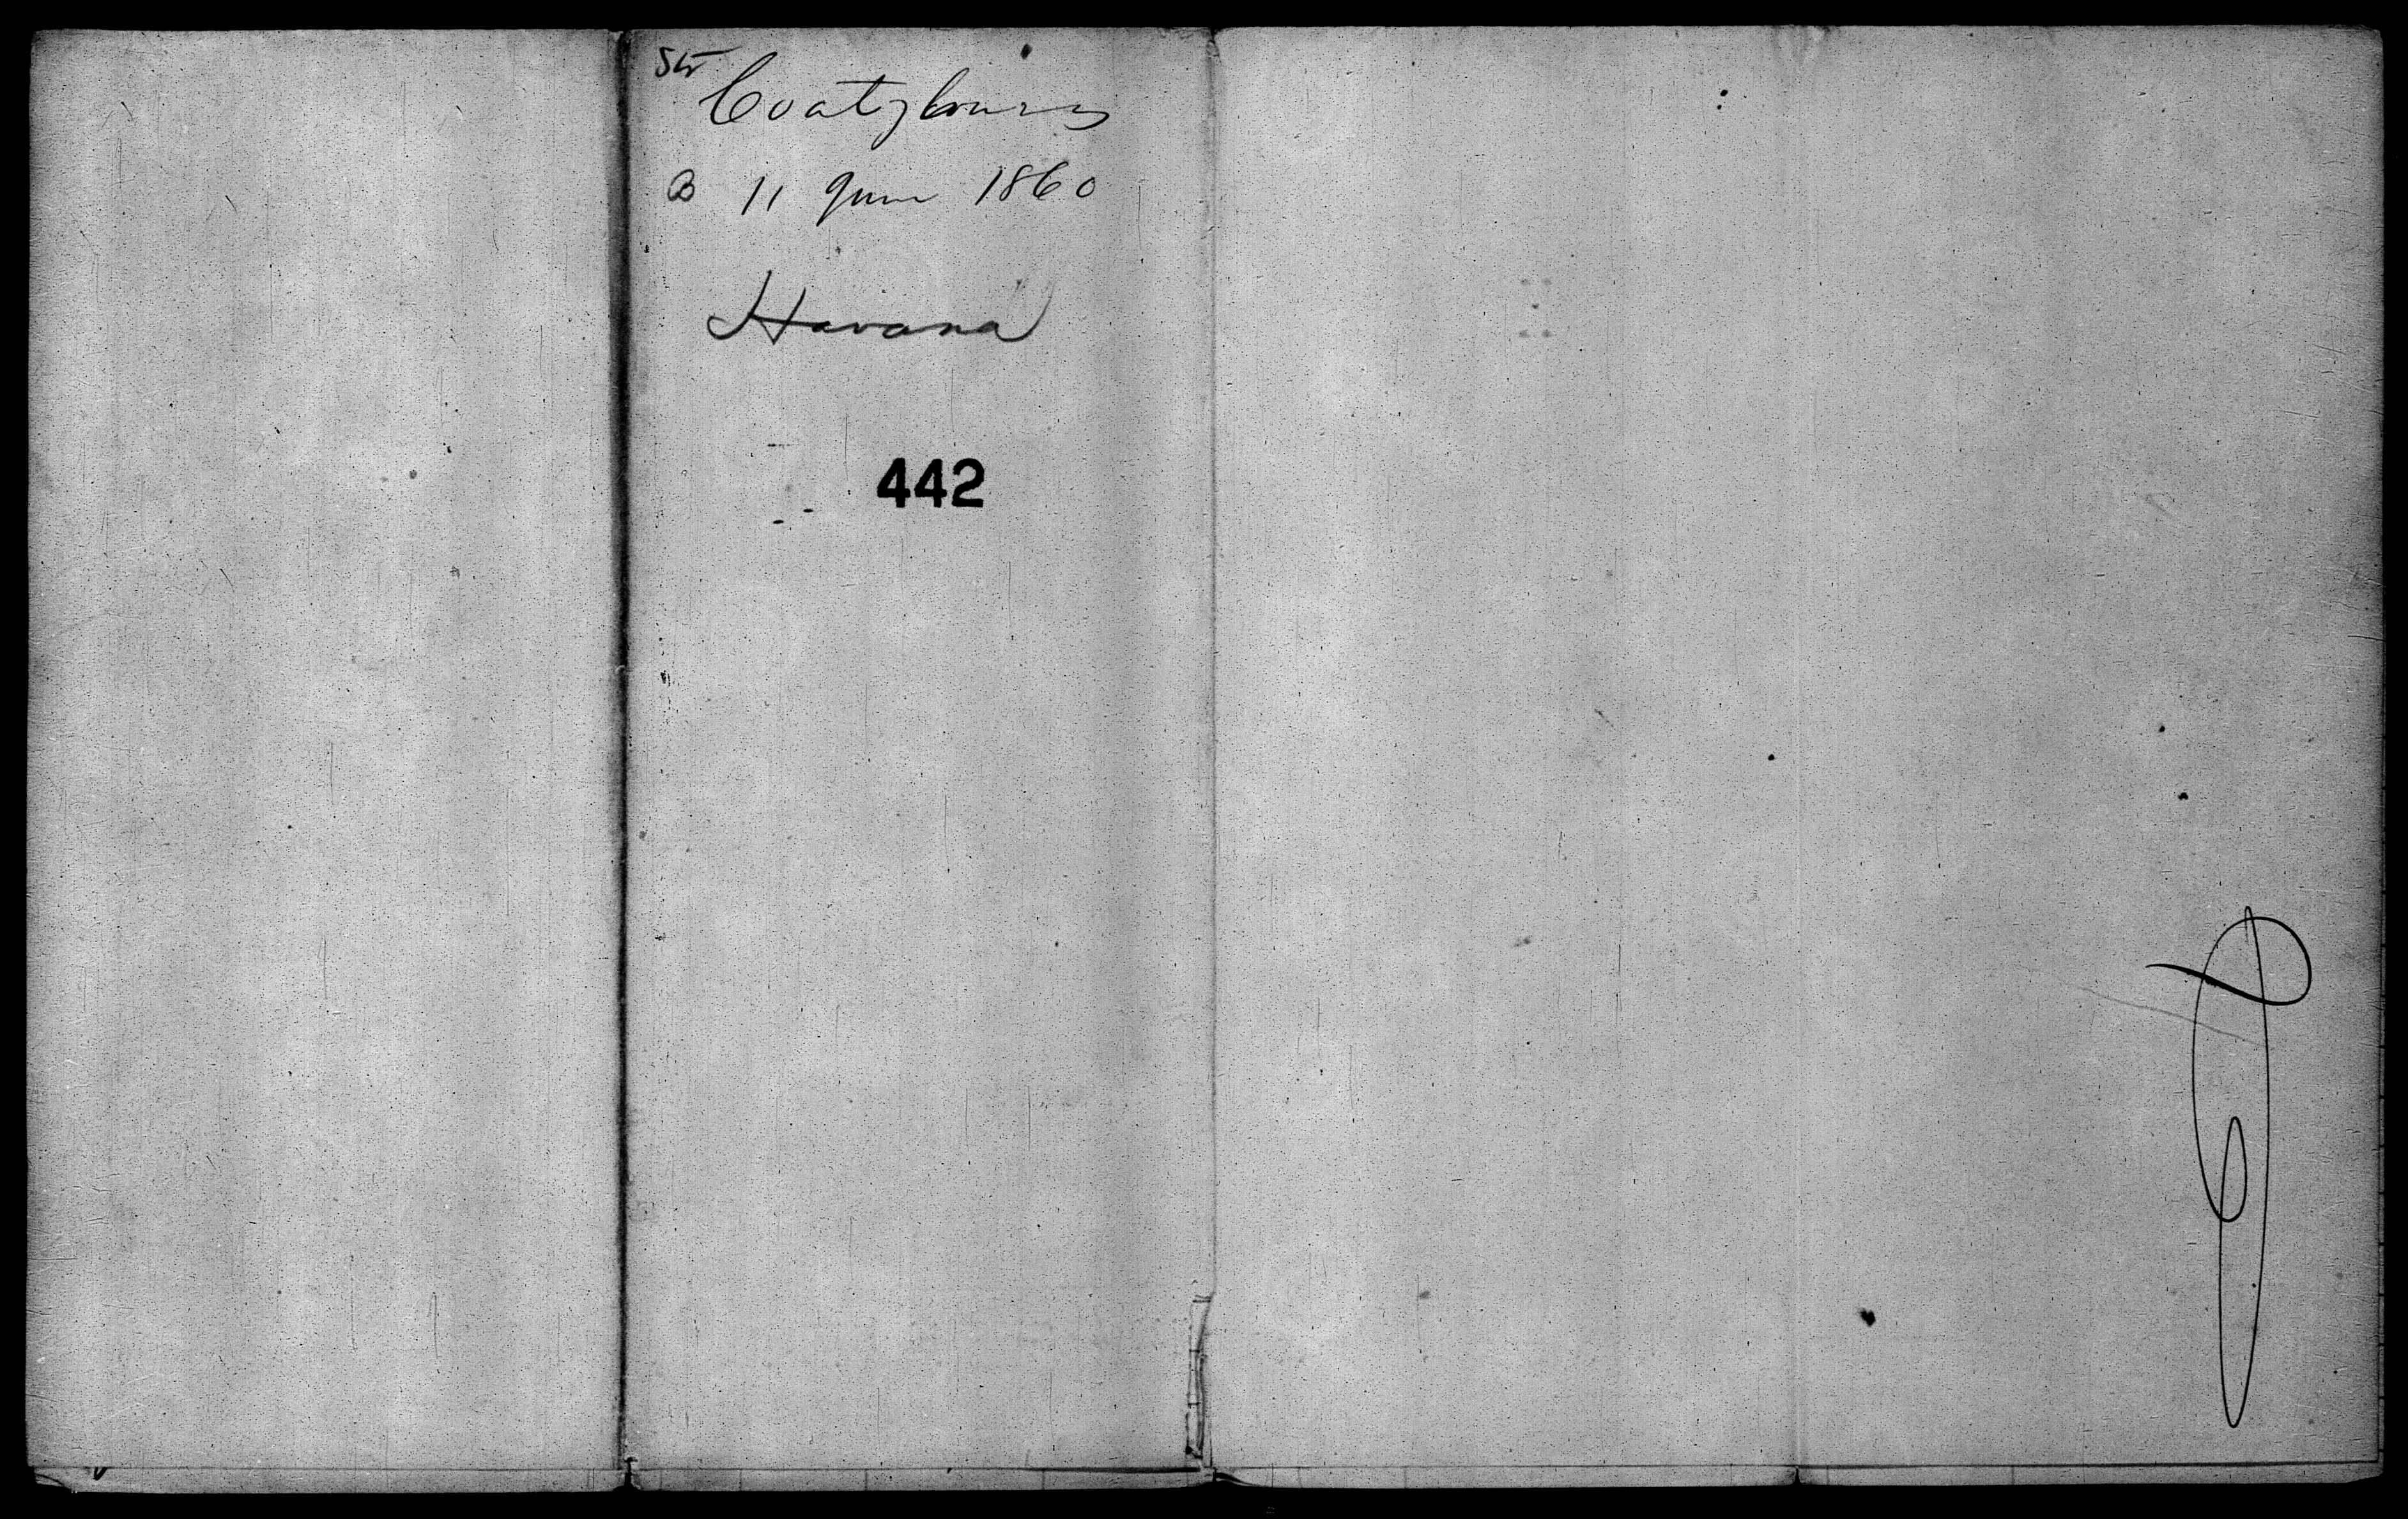 Str Coatzlours
@ 11 June 1860
Havana
442